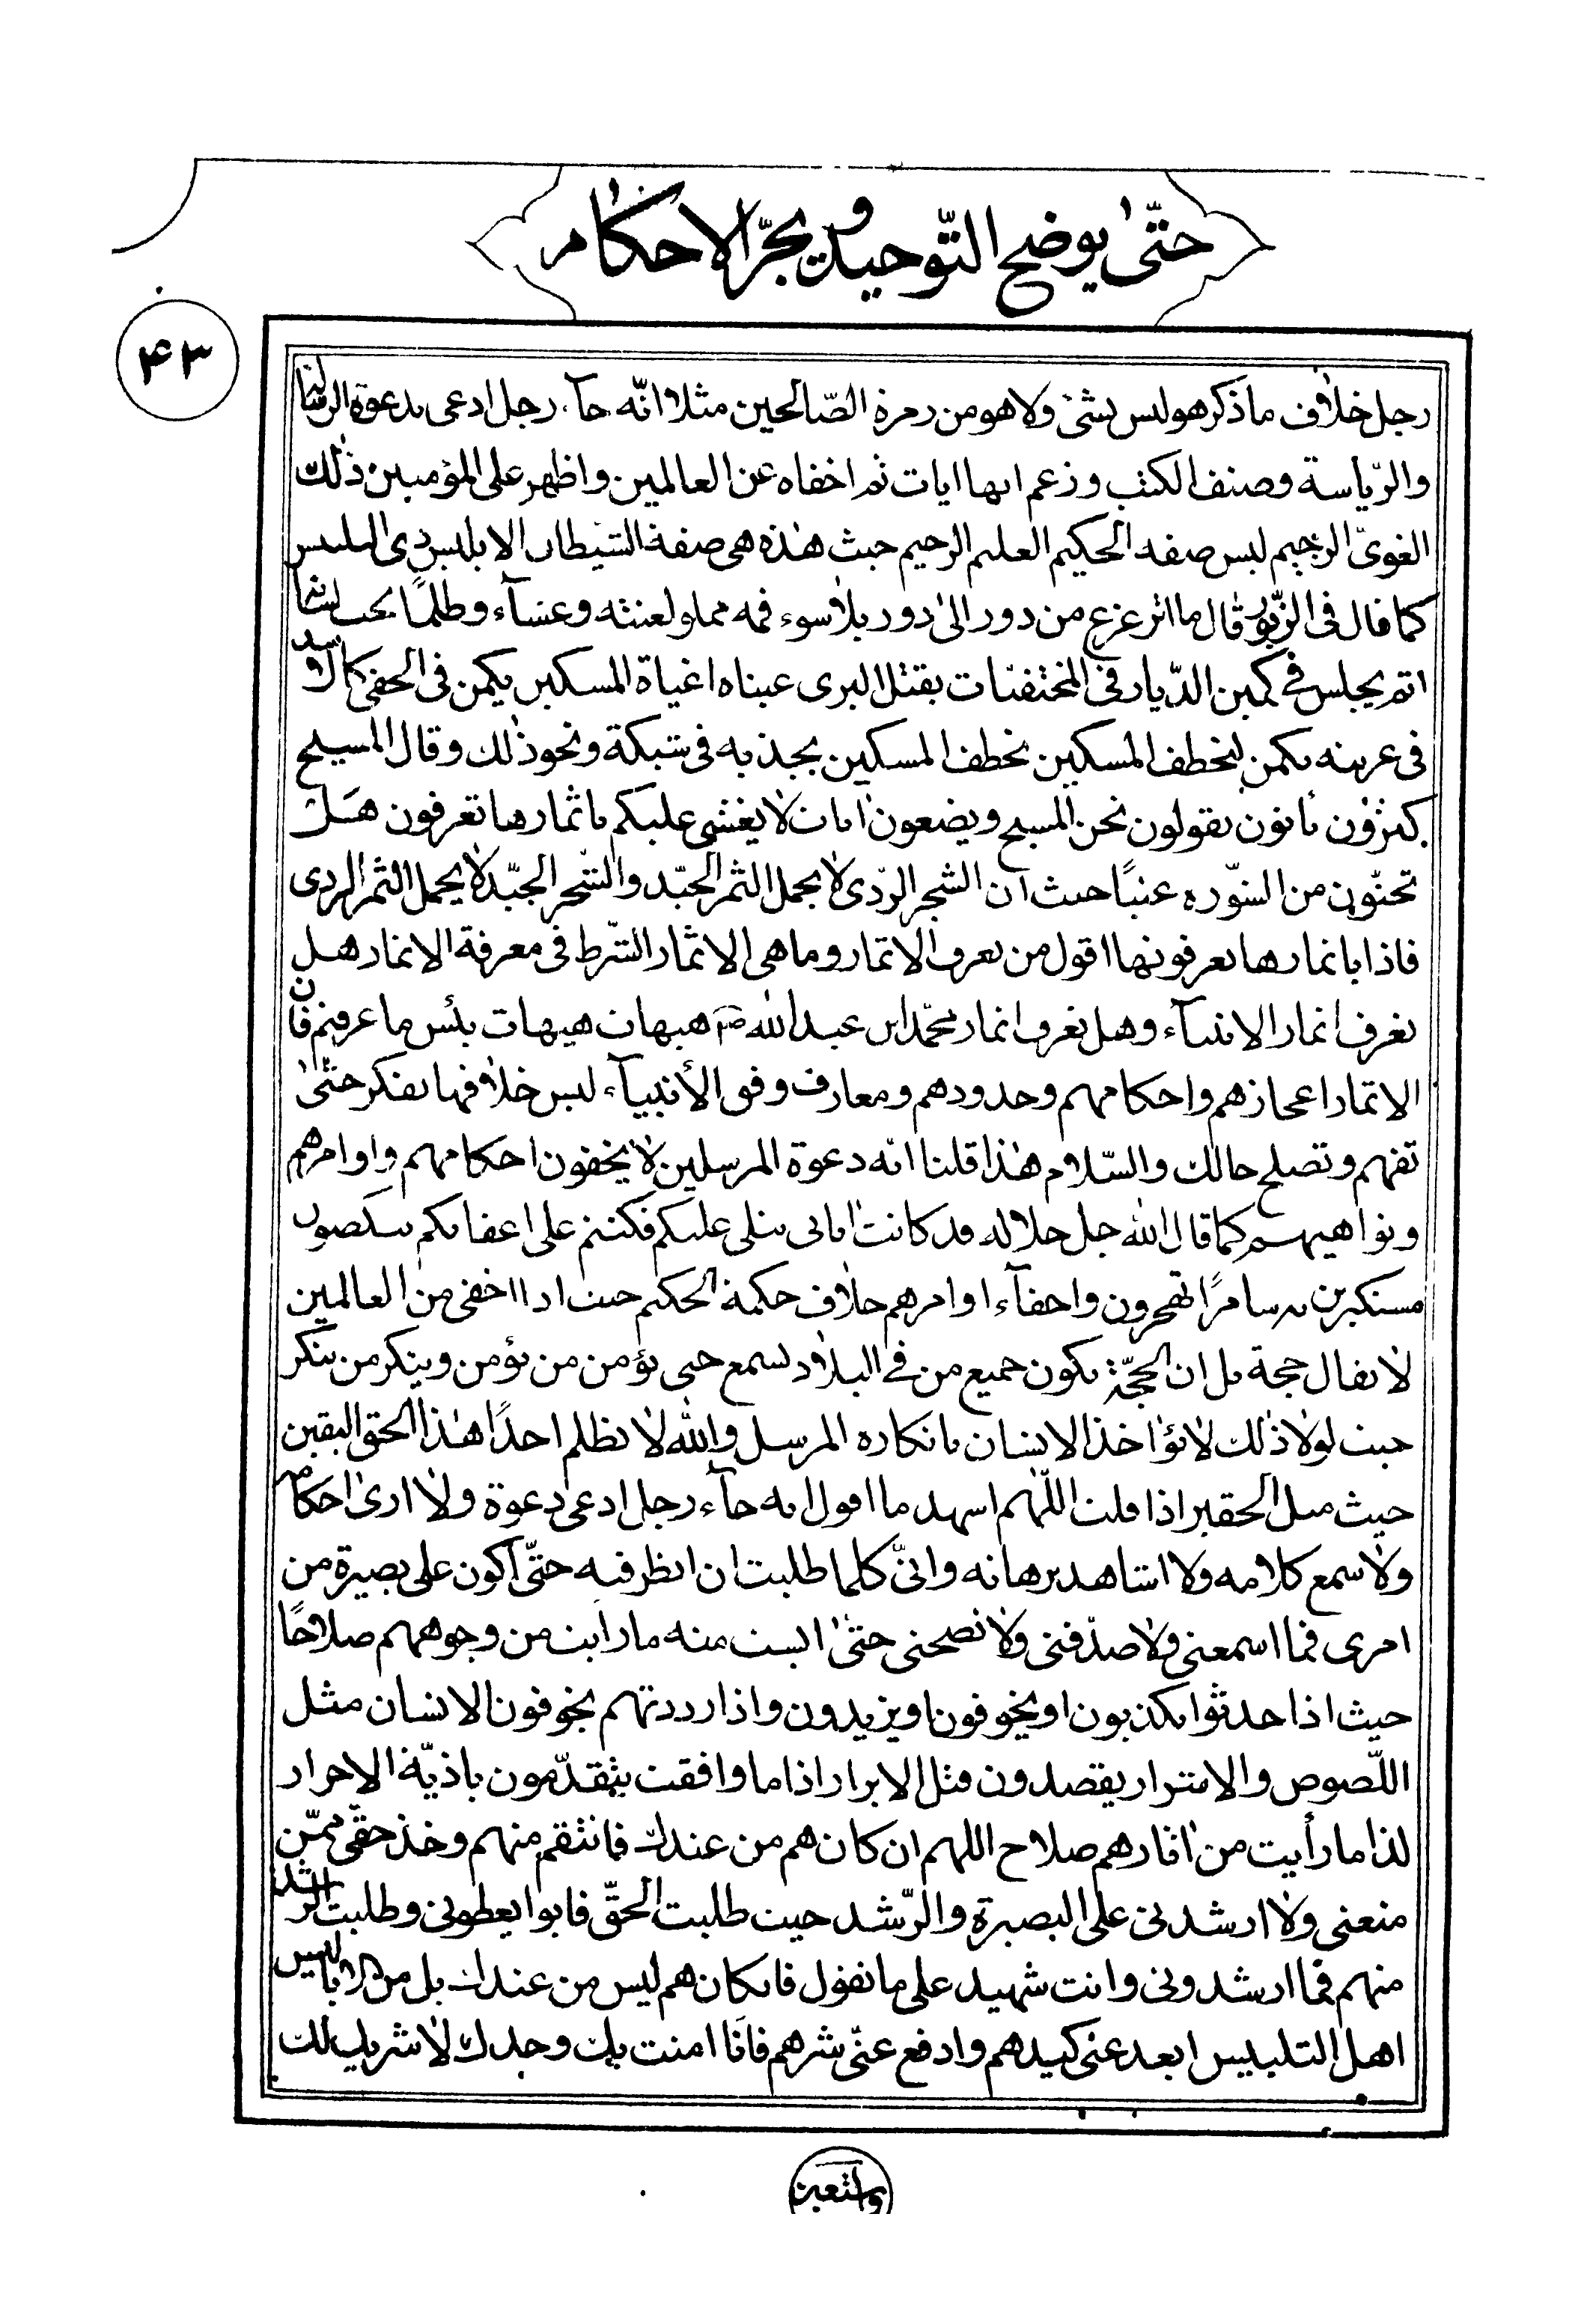 حتّى يوضح التّوحيد و يجرّ الاحكام
۴۳
رجل خلاف ما ذكر هو ليس بشئ ولا هو من زمرة الصّالحين مثلا انّه جآء رجل ادعى بدعوة الرسالة
والرّياسة وصنف الكتب وزعم انها ايات ثم اخفاه عن العالمين واظهر على المؤمنين ذلك
الغوىّ الرجيم ليس صفه الحكيم العليم الرحيم حيث هذه هى صفة الشيطان الابليس ذى التلبيس
كما قال فى الزّبور قال ما اتزعزع من دور الى دور بلا سوء فمه مملو لعنته وغشآء وظلمًا تحت لسانه
اثم يجلس فى كمين الدّيار فى المختفيات يقتل البرى عيناه المسكين يكمن فى الخفى كالاسد
فى عرينه يكمن ليخطف المسكين يخطف المسكين بجذبه فى شبكة ونحو ذلك وقال المسيح
كثيرون يأتون يقولون نحن المسيح ويضعون ايات لا يغشى عليكم باثمارها تعرفون هل
تجنّون من الشوّره عنبًا حيث ان الشجر الرّدى لا يحمل الثمر الجيّد والشجر الجيّد لا يحمل الثمر الردى
فاذا باثمارها تعرفونها اقول من يعرف الاثمار وما هى الاثمار الشرط فى معرفة الاثمار هل
تعرف اثمار الانبيآء وهل تعرف اثمار محمّد ابن عبد الله ص هيهات هيهات بئس ما عرفتم فان
الاثمار اعجازهم واحكامهم وحدودهم ومعارف وفق الأنبيآء ليس خلافها تفكر حتّى
تفهم وتصلح حالك والسّلام هذا قلنا انه دعوة المرسلين لا يخفون احكامهم واوامرهم
ونواهيهم كما قال الله جل جلاله قد كانت اياتى تتلى عليكم فكنتم على اعقابكم تنكصون
مستكبرين به سامرًا تهجرون واخفآء اوامرهم خلاف حكمة الحكيم حيث اذا اخفى من العالمين
لا يقال حجة بل ان الحجّة يكون جميع من فى البلاد يسمع حتى يؤمن من يؤمن وينكر من ينكر
حيث لولا ذلك لا يؤاخذ الانسان بانكاره المرسل والله لا يظلم احدًا هذا الحق اليقين
حيث مثل الحقير اذا قلت اللّهم اشهد ما اقول انه جآء رجل ادعى دعوة ولا ارى احكامه
ولا سمع كلامه ولا اشاهد برهانه وانّى كلما طلبت ان انظر فيه حتّى اكون على بصيرة من
امرى فما اسمعنى ولا صدّقنى ولا نصحنى حتّى ايست منه ما رأيت من وجوههم صلاحًا
حيث اذا حدثوا يكذبون او يخوفون او يزيدون واذا رددتهم يخوفون الانسان مثل
اللّصوص والاشرار يقصدون قتل الابرار اذا ما وافقت يتقدّمون باذيّة الاحرار
لذا ما رأيت من اثارهم صلاح اللهم ان كان هم من عندك فانتقم منهم وخذ حقّى ممّن
منعنى ولا ارشدنى على البصيرة والرّشد حيث طلبت الحقّ فابوا يعطونى وطلبت الرشد
منهم فما ارشدونى وانت شهيد على ما نقول فان كان هم ليس من عندك بل من الاباليس
اهل التلبيس ابعد عنى كيدهم وادفع عنّى شرهم فانا امنت بك وحدك لا شريك لك
واستعين